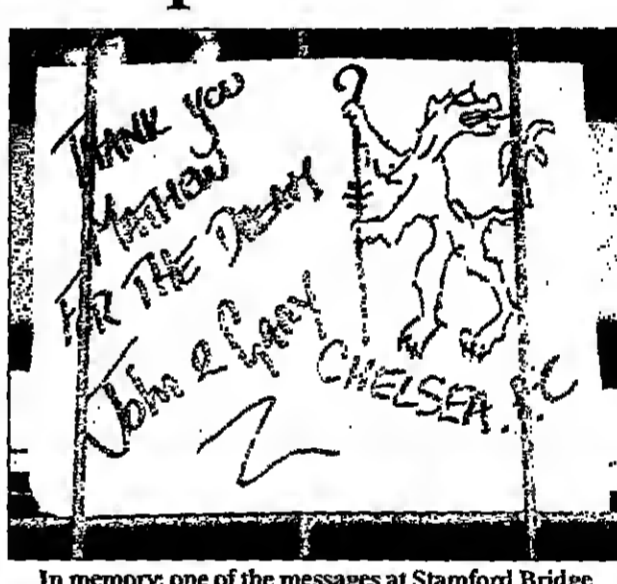 THANK YOU
MATHEW
FOR THE DREAM
John & Gary
CHELSEA F.C
In memory: one of the messages at Stamford Bridge